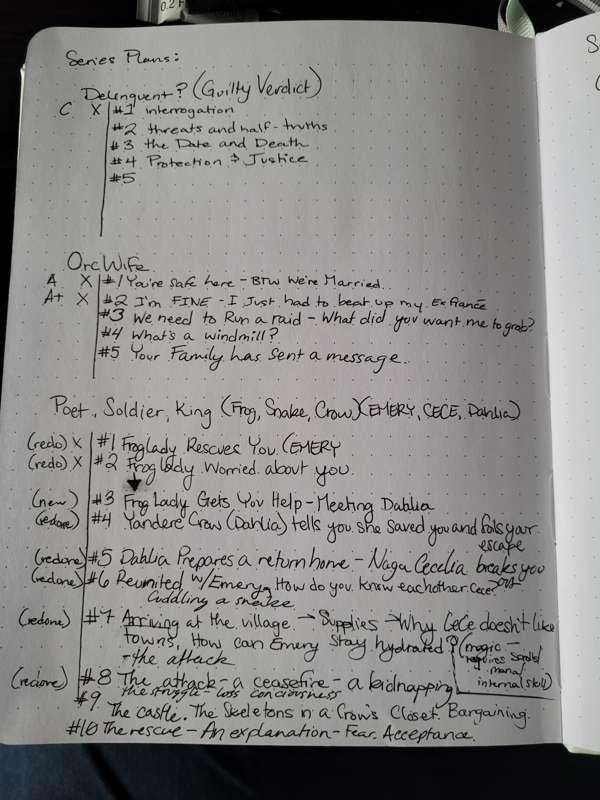 0.2
Series Plans:
Delinquent? (Guilty Verdict)
C X #1 interrogation
#2 threats and half-truths
#3 the Date and Death
#4 Protection & Justice
#5
Orc Wife
A X #1 You're Safe here - BTW We're Married.
A+ X #2 I'm FINE - I Just had to beat up my Ex fiancé
#3 We need to Run a raid - What did you want me to grab?
#4 What's a windmill?
#5 Your Family has sent a message.
Poet, Soldier, King (Frog, Snake, Crow) (EMERY, CECE, Dahlia)
(redo) X #1 Froglady Rescues You. (EMERY
(redo) X #2 Froglady Worried about you.
(new) #3 Frog Lady Gets You Help - Meeting Dahlia
(redone) #4 Yandere Crow (Dahlia) tells you she saved you and foils your
escape
(redone) #5 Dahlia Prepares a return home - Naga Cecelia breaks you
out
(redone) #6 Reunited w/ Emery, How do you know eachother Cece?
Cuddling a snake
(redone) #7 Arriving at the village → Supplies → Why CeCe doesn't like
towns, How can Emery stay hydrated? (magic -
requires
mana
internal skill)
- the attack
(redone) #8 The attack - a ceasefire - a kidnapping
the struggle - loss conciousness
#9 The castle. The Skeletons in a Crow's Closet. Bargaining.
#10 The rescue - An explanation - Fear. Acceptance.
S